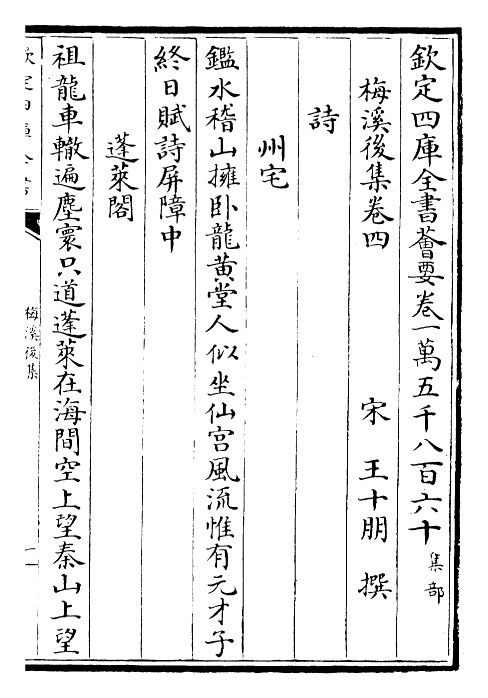 欽定四庫全書薈要卷一萬五千八百六十集部
梅溪後集卷四　宋　王十朋　撰
詩
州宅
鑑水稽山擁卧龍黄堂人似坐仙宫風流惟有元才子
終日賦詩屏障中
蓬萊閣
祖龍車轍遍塵寰只道蓬萊在海間空上望秦山上望
梅溪後集